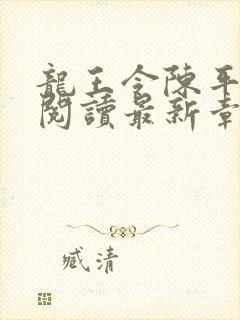 龍王令陳平
閱讀最新章
臧清